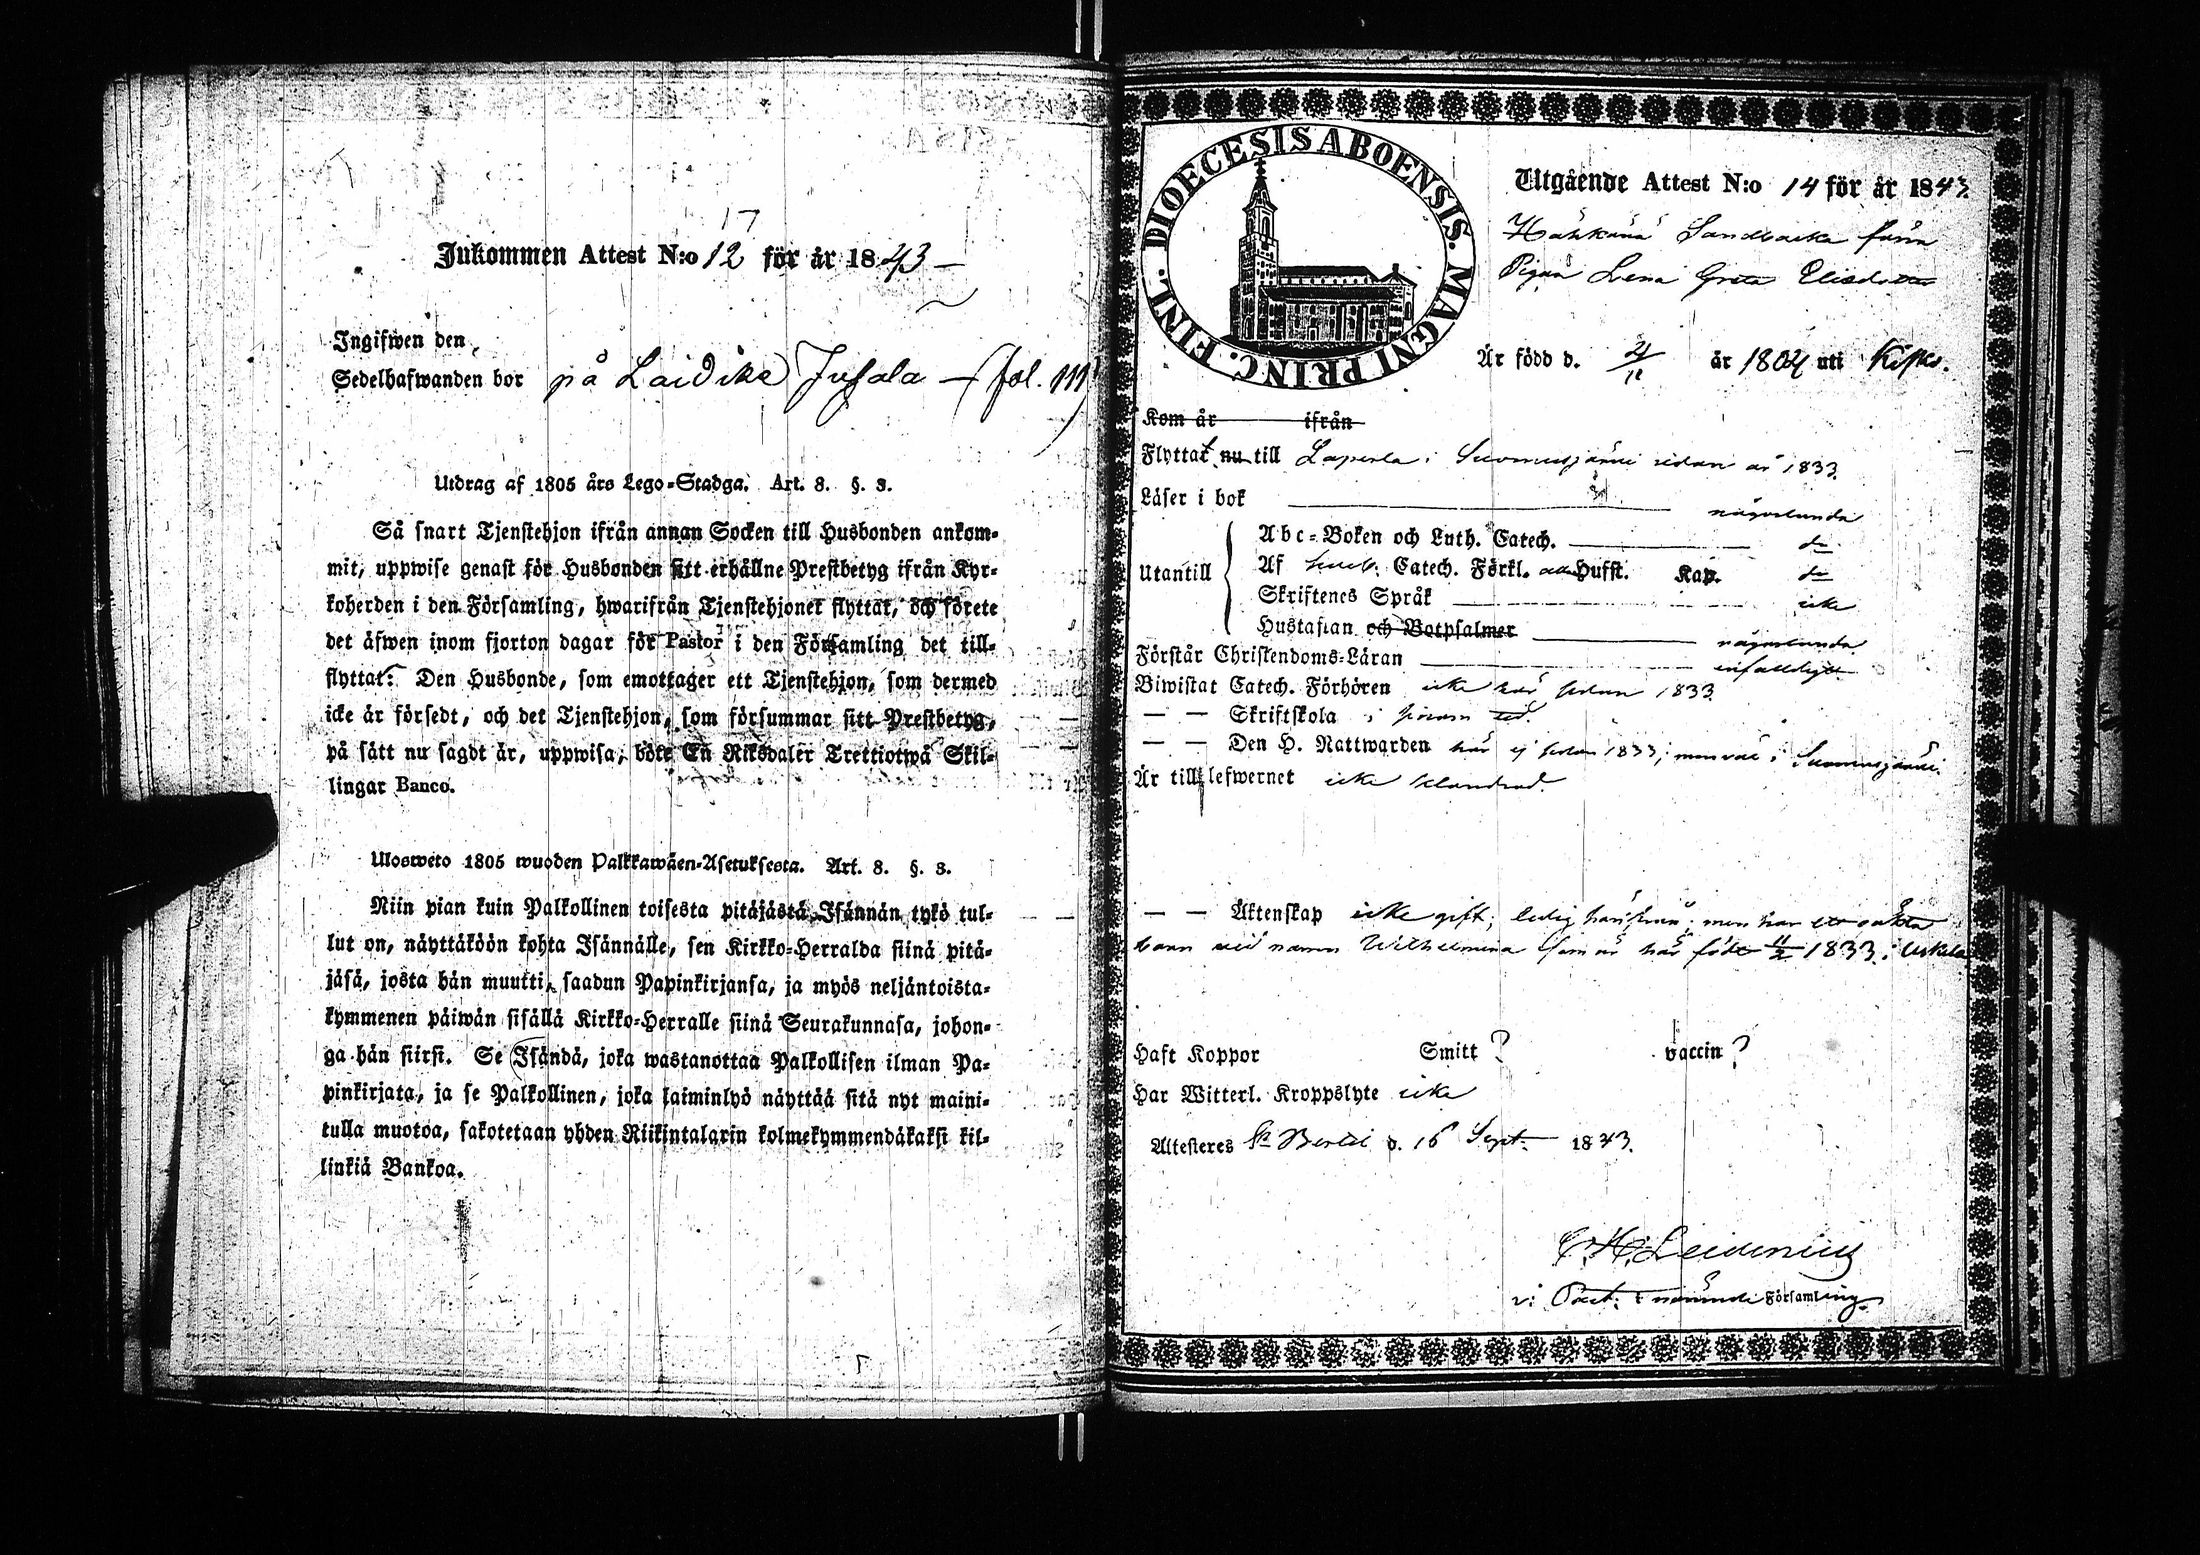 17
Inkommen Attest N:o 12 för år 1843 —
Ingifwen den
Sedelhafwanden bor på Laidike Jusala — (fol. 111)
Utdrag af 1805 års Lego-Stadga. Art. 8. §. 3.
Så snart Tjenstehjon ifrån annan Socken till Husbonden ankom-
mit, uppwise genast för Husbonden sitt erhållne Prestbetyg ifrån Kyr-
koherden i den Församling, hwarifrån Tjenstehjonet flyttat, och förete
det äfwen inom fjorton dagar för Pastor i den Församling det till-
flyttat: Den Husbonde, som emottager ett Tjenstehjon, som dermed
icke är försedt, och det Tjenstehjon, som försummar sitt Prestbetyg,
på sätt nu sagdt är, uppwisa, böte En Riksdaler Trettiotwå Skil-
lingar Banco.
Uloswеto 1805 wuoden Palkkawäen-Asetuksesta. Art. 8. §. 3.
Niin pian kuin Palkollinen toisesta pitäjästä Isännän tykö tul-
lut on, näyttäköön kohta Isännälle, sen Kirkko-Herralda siinä pitä-
jäsä, josta hän muutti, saadun Papinkirjansa, ja myös neljäntoista-
kymmenen päiwän sisällä Kirkko-Herralle siinä Seurakunnasa, johon-
ga hän siirsi. Se Isändä, joka wastanottaa Palkollisen ilman Pa-
pinkirjata, ja se Palkollinen, joka laiminlyö näyttää sitä nyt maini-
tulla muotoa, sakotetaan yhden Riikintalarin kolmekymmendäkaksi kil-
linkiä Bankoa.
DIOECESIS ABOENSIS. MAGNI PRINC. FINL.
Utgående Attest N:o 14 för år 1843.
Sandbacka förra
Pigan Lena Greta Elisdotter
Är född d. 4/11 år 1804 uti Kisko.
Kom år ifrån
Flyttat nu till Laperla i Suomusjärvi sedan år 1833.
Läser i bok någorlunda
Utantill
Abc-Boken och Luth. Catech. do
Af Catech. Förkl. Hufst. Kap. do
Skriftenes Språk icke
Hustaflan och Botpsalmer någorlunda
Förstår Christendoms-Läran enfaldigt
Biwistat Catech. Förhören icke här sedan 1833
— — Skriftskola i sinom tid.
— — Den H. Nattwarden här ej sedan 1833; men väl i Suomusjärvi.
Är till lefwernet icke klandrad.
— — Äktenskap icke gift; ledig härifrån; men har ett oäkta
barn vid namn Wilhelmina som är här född 11/2 1833 i Uskela
Haft Koppor Smitt ? vaccin ?
Har Witterl. Kroppslyte icke
Attesteres St Bertils d. 16 Sept. 1843.
C. H. Leidenius
v: Past: i Församling.